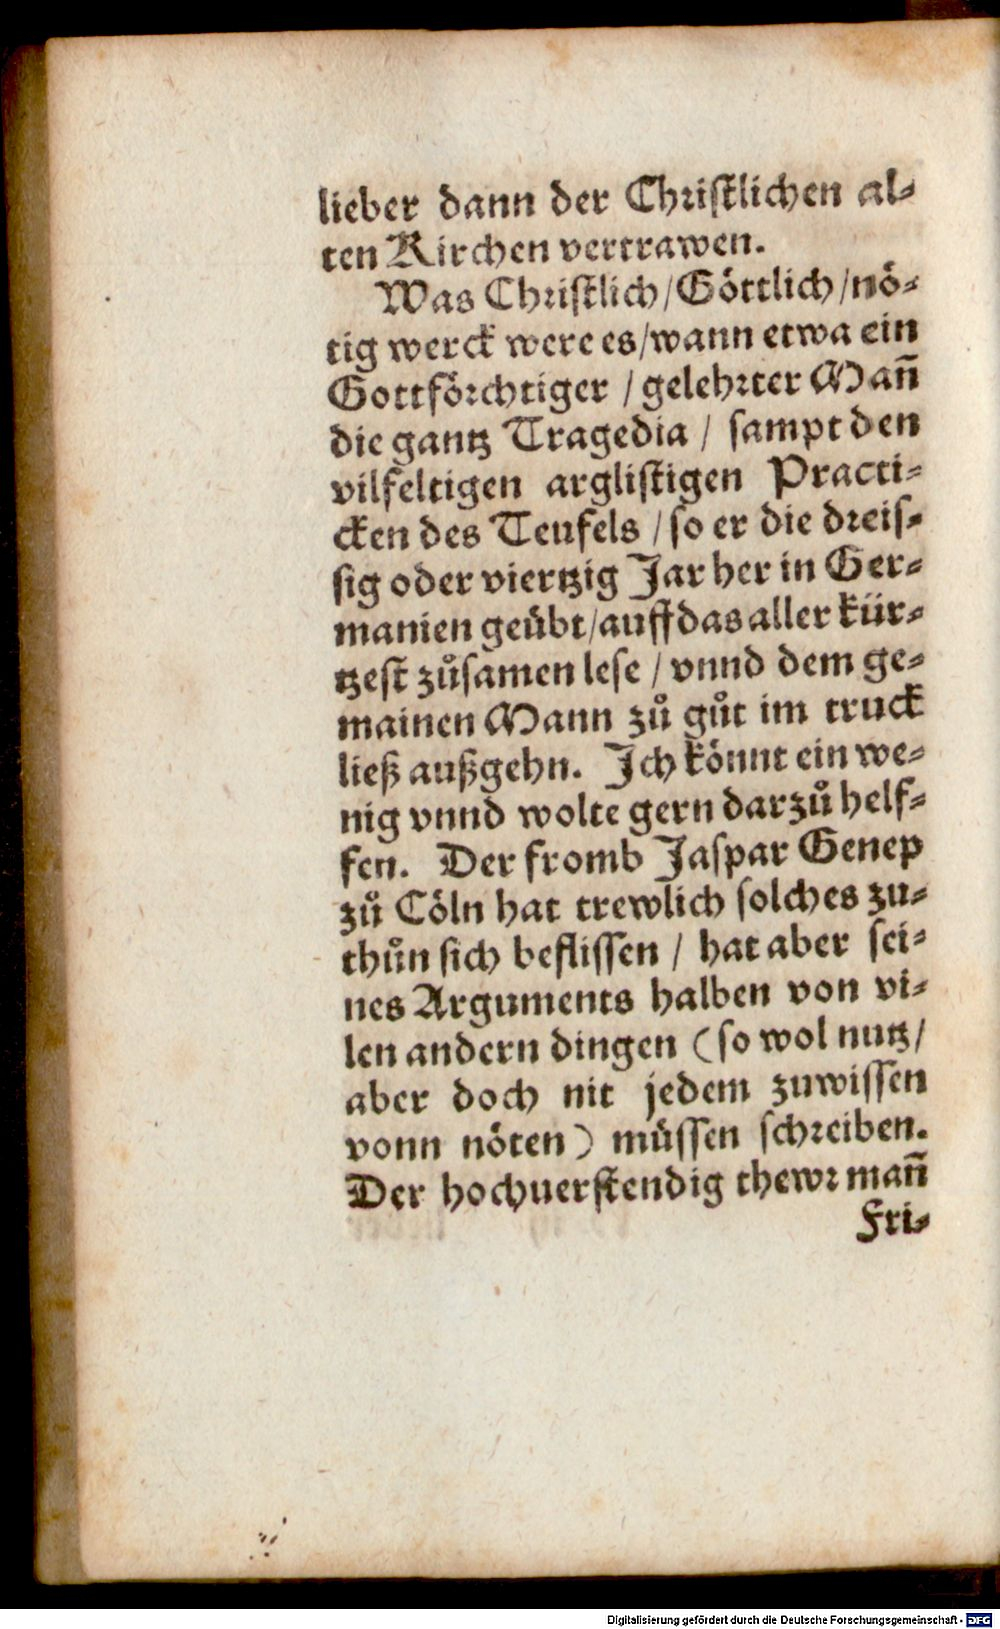 lieber dann der Christlichen al⸗
ten Kirchen vertrawen.
Was Christlich/Göttlich/nö⸗
tig werck were es/wann etwa ein
Gottförchtiger / gelehrter Man̄
die gantz Tragedia / sampt den
vilfeltigen arglistigen Practi⸗
cken des Teufels / so er die dreis⸗
sig oder viertzig Jar her in Ger⸗
manien geübt/auff das aller kür⸗
tzest zůsamen lese / vnnd dem ge⸗
mainen Mann zů gůt im truck
ließ außgehn. Ich könnt ein we⸗
nig vnnd wolte gern darzů helf⸗
fen. Der fromb Jaspar Genep
zů Cöln hat trewlich solches zu⸗
thůn sich beflissen / hat aber sei⸗
nes Arguments halben von vi⸗
len andern dingen (so wol nutz/
aber doch nit jedem zuwissen
vonn nöten) müssen schreiben.
Der hochuerstendig thewr man̄
Fri⸗
Digitalisierung gefördert durch die Deutsche Forschungsgemeinschaft - DFG